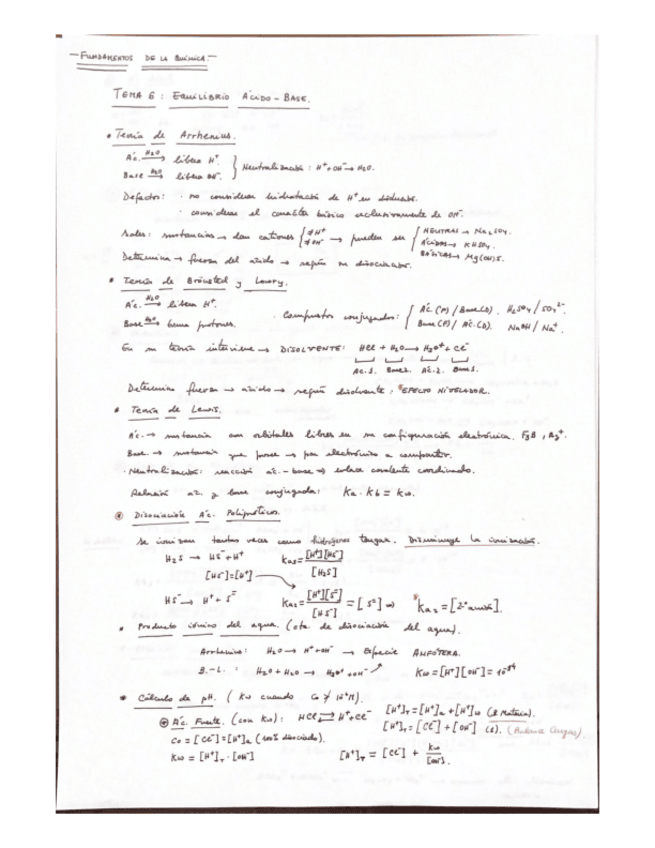 - FUNDAMENTOS DE LA QUÍMICA. -
TEMA 6: EQUILIBRIO ÁCIDO-BASE.
• Teoría de Arrhenius.
Ác. H₂O→ libera H⁺. } Neutralización: H⁺+OH⁻→ H₂O.
Base H₂O→ libera OH⁻.
Defectos: · no considera hidratación de H⁺ en disolución.
· considera el carácter básico exclusivamente de OH⁻.
Sales: sustancias → dan cationes { ≠H⁺ ≠OH⁻ → pueden ser { NEUTRAS → Na₂SO₄.
ÁCIDAS → KHSO₄.
BÁSICAS → Mg(OH)S.
Determina → fuerza del ácido → según su disociación.
• Teoría de Brönsted y Lowry.
Ác. H₂O→ libera H⁺.
Base H₂O→ toma protones. · Compuestos conjugados: { Ác.(P) / Base(D). H₂SO₄ / SO₄²⁻.
Base(P) / Ác.(D). NaOH / Na⁺.
En su teoría interviene → DISOLVENTE: HCl + H₂O → H₃O⁺ + Cl⁻
Ác.1. Base2. Ác.2. Base1.
Determina fuerza → ácido → según disolvente: EFECTO NIVELADOR.
• Teoría de Lewis.
Ác. → sustancia con orbitales libres en su configuración electrónica. F₃B, Ag⁺.
Base → sustancia que posee → par electrónico a compartir.
· Neutralización: reacción ác.-base → enlace covalente coordinado.
Relación ác. y base conjugada: Ka · Kb = Kw.
Disociación Ác. Polipróticos.
Se ionizan tantas veces como hidrógenos tengan. Disminuye la ionización.
H₂S → HS⁻ + H⁺ Ka₁= [H⁺][HS⁻] / [H₂S]
[HS⁻]=[H⁺]
HS⁻ → H⁺ + S⁼ Ka₂= [H⁺][S⁼] / [HS⁻] = [S⁼] ⇒ Ka₂ = [2º anión].
• Producto iónico del agua. (cte. de disociación del agua).
Arrhenius: H₂O → H⁺+OH⁻ → Especie ANFÓTERA.
B.-L. : H₂O + H₂O → H₃O⁺ + OH⁻ Kw = [H⁺][OH⁻] = 10⁻¹⁴
• Cálculo de pH. (Kw cuando
Ác. Fuerte. (con Kw): HCl ⇄ H⁺+Cl⁻ [H⁺]T = [H⁺]a + [H⁺]w (B. Materia).
Co = [Cl⁻] = [H⁺]a (100% disociado). [H⁺]T = [Cl⁻] + [OH⁻] (Balance Cargas).
Kw = [H⁺]T · [OH⁻] [H⁺]T = [Cl⁻] + Kw / [OH⁻].